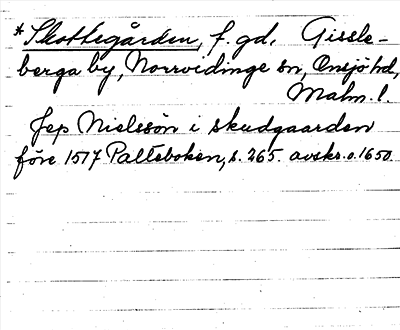 *Skottegården, f. gd. Gissle-
berga by, Norrvidinge sn, Onsjö hd,
Malm. l.
Jep Nielssøn i skudgaarden
före 1517 Palteboken, s. 265. avskr. o. 1650.